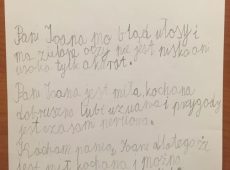 Pani Joana ma błąd włosy i
ma zielone oczy nie jest niska ani
wysoka tylko akurat.
Pani Joana jest miła, kochana
dobruszna lubi uzwania i przygody
jest czasem nerwowa.
Kocham panią Joane dlatego że
jest miła kochana i można